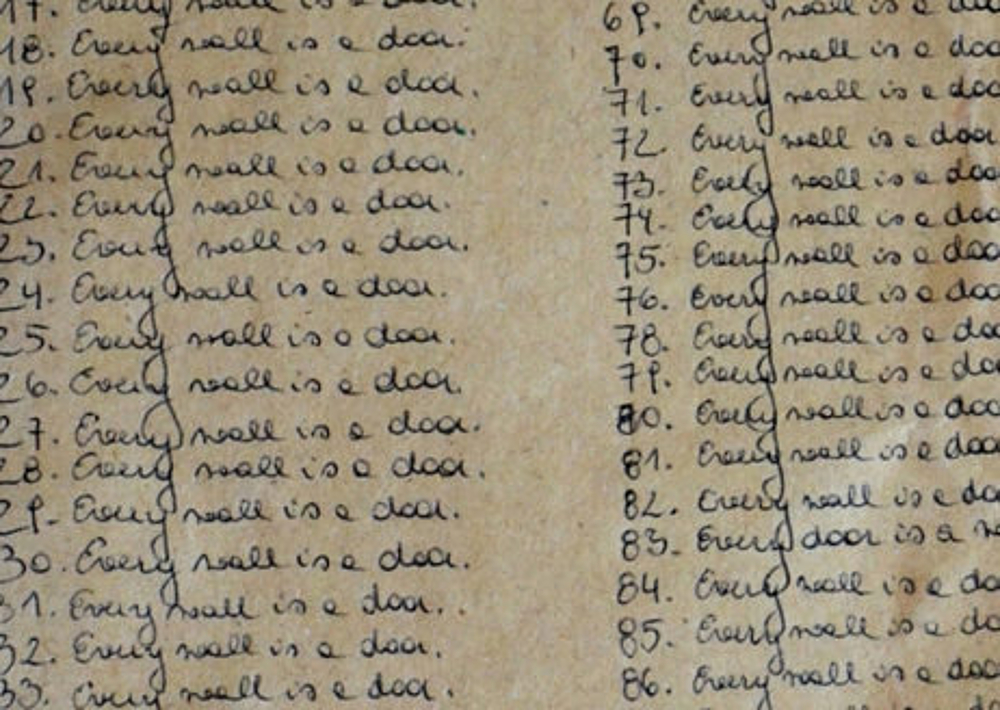 17. Every wall is a door.
18. Every wall is a door.
19. Every wall is a door.
20. Every wall is a door.
21. Every wall is a door.
22. Every wall is a door.
23. Every wall is a door.
24. Every wall is a door.
25. Every wall is a door.
26. Every wall is a door.
27. Every wall is a door.
28. Every wall is a door.
29. Every wall is a door.
30. Every wall is a door.
31. Every wall is a door..
32. Every wall is a door.
33. Every wall is a door.
69. Every wall is a doo
70. Every wall is a doo
71. Every wall is a doo
72. Every wall is a door
73. Every wall is a doo
74. Every wall is a doo
75. Every wall is a doo
76. Every wall is a doo
78. Every wall is a do
79. Every wall is a do
80. Every wall is a doo
81. Every wall is a doo
82. Every wall is a do
83. Every door is a w
84. Every wall is a do
85. Every wall is a do
86. Every wall is a doo